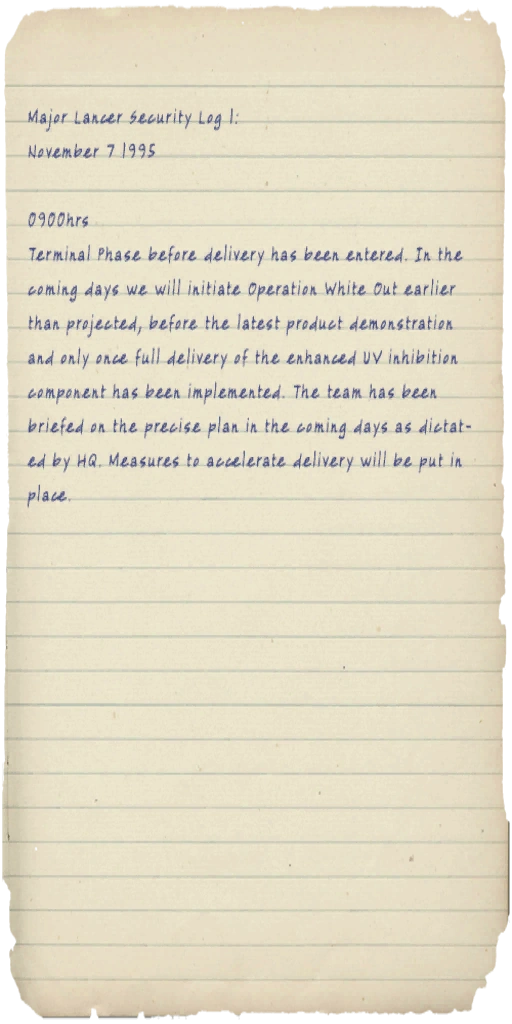 Major Lancer Security Log 1:
November 7 1995
0900hrs
Terminal Phase before delivery has been entered. In the
coming days we will initiate Operation White Out earlier
than projected, before the latest product demonstration
and only once full delivery of the enhanced UV inhibition
component has been implemented. The team has been
briefed on the precise plan in the coming days as dictat-
ed by HQ. Measures to accelerate delivery will be put in
place.